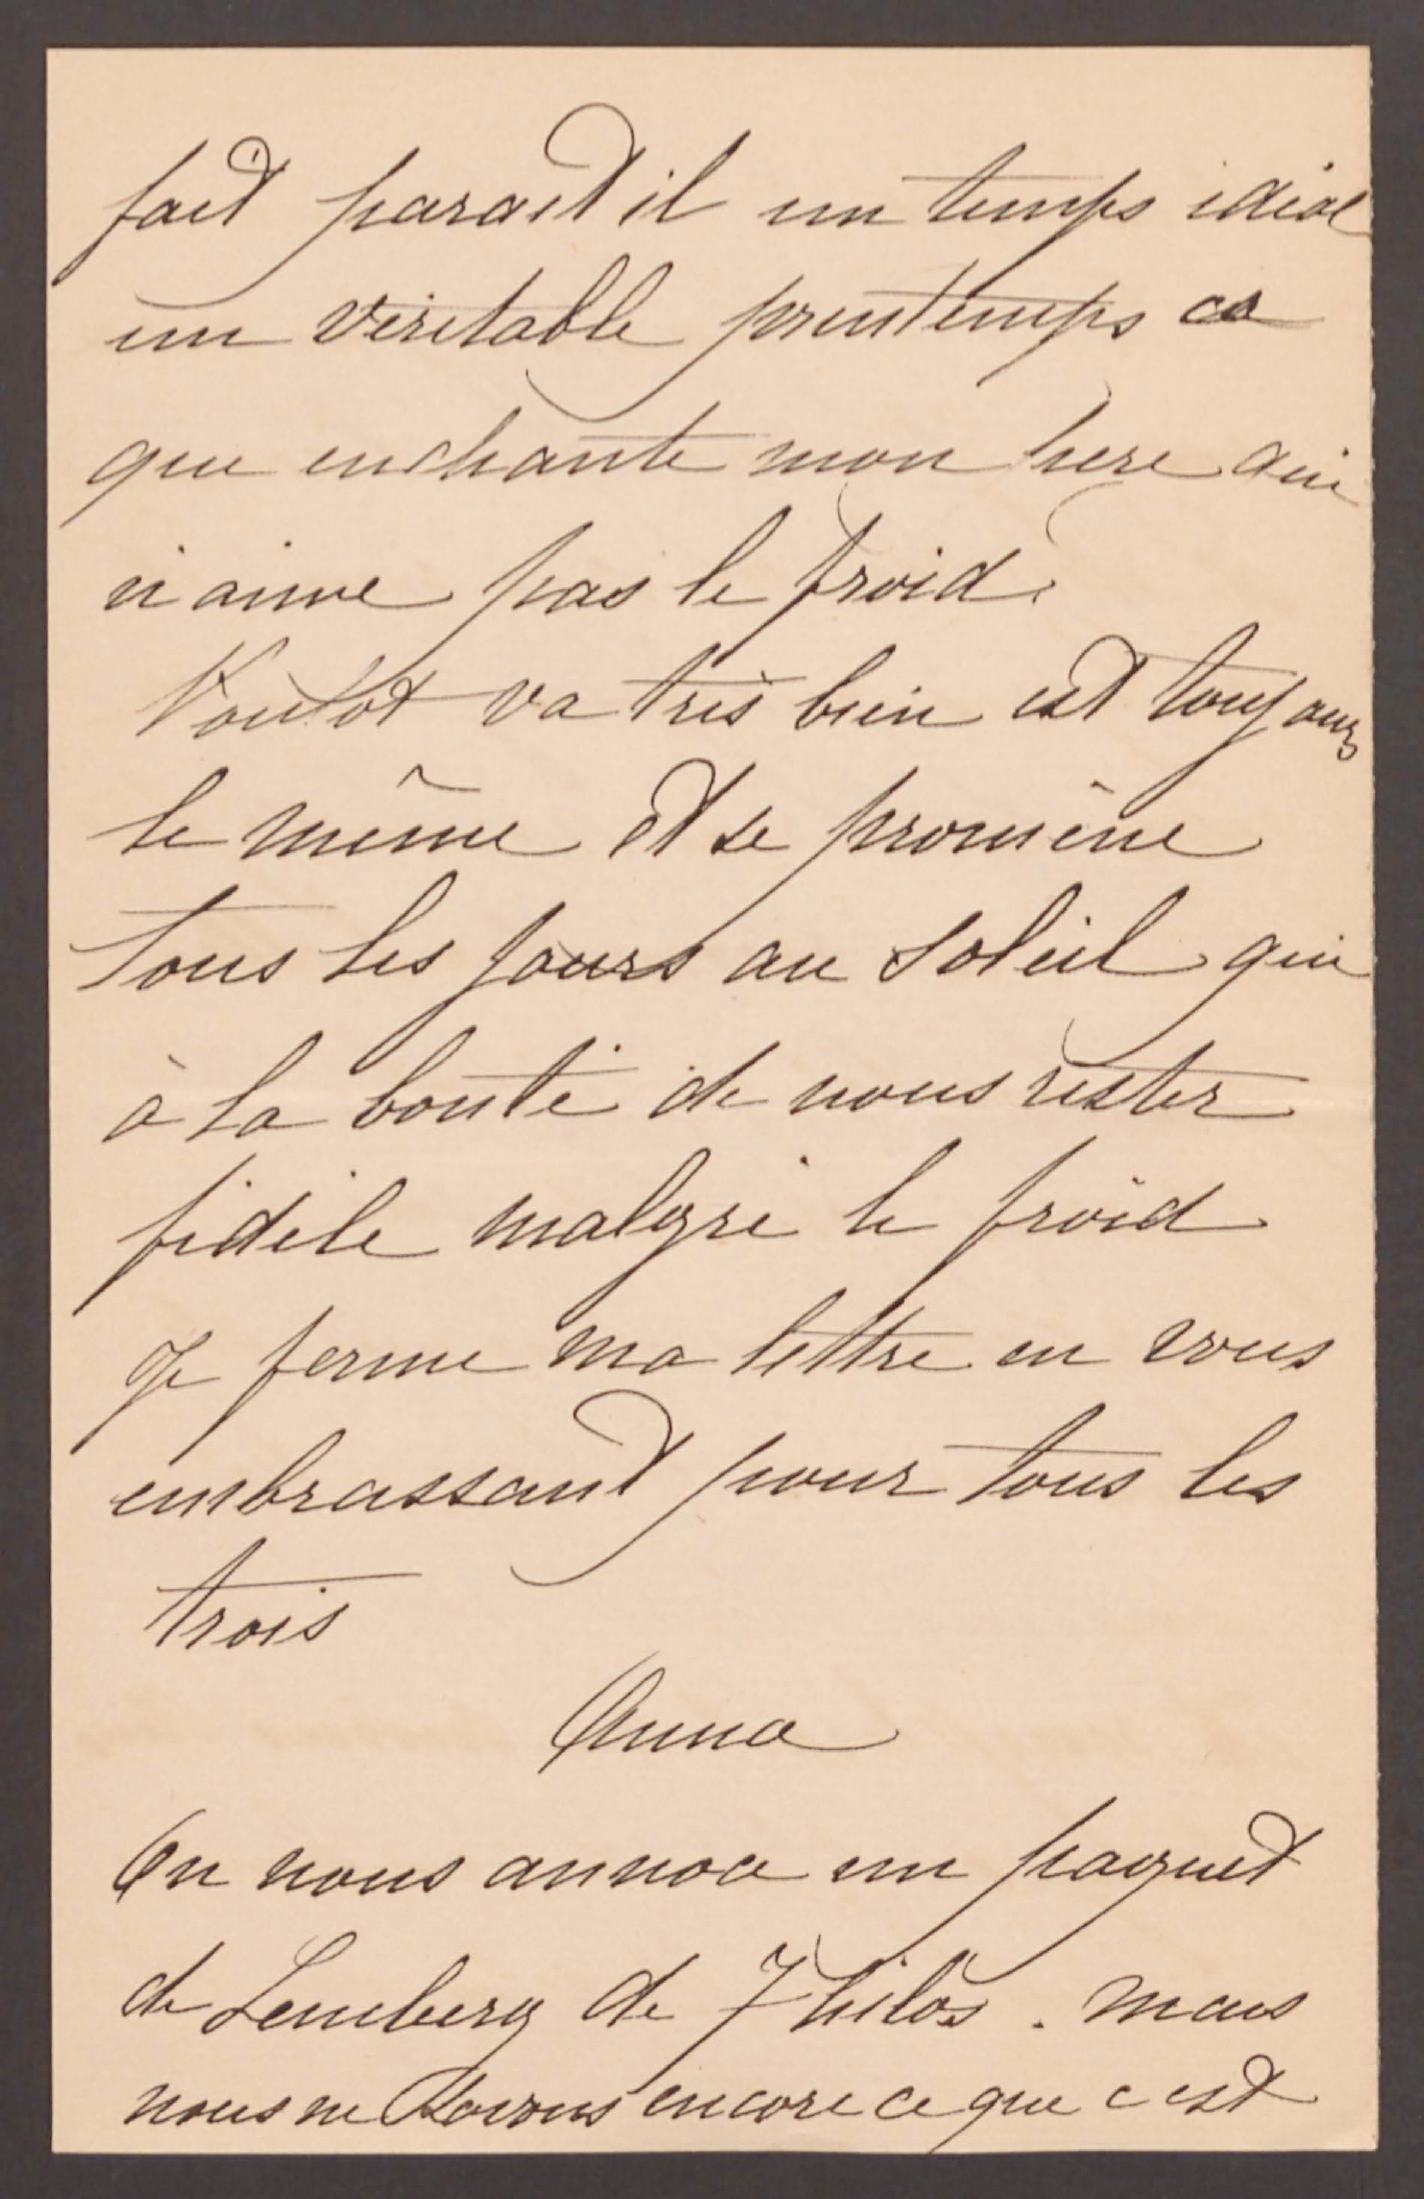 fait parait il un temps idéal
un véritable printemps ce
que enchante mon père qui
n aime pas le froid.
Toutot va très bien est toujours
le même et se promène
tous les jours au soleil qui
à la bonté de nous rester
fidèle malgré le froid
Je ferme ma lettre en vous
embrassant pour tous les
trois
Anna
On nous annoce un paquet
de Lemberg de 7 kilos. mais
nous ne savons encore ce que c est